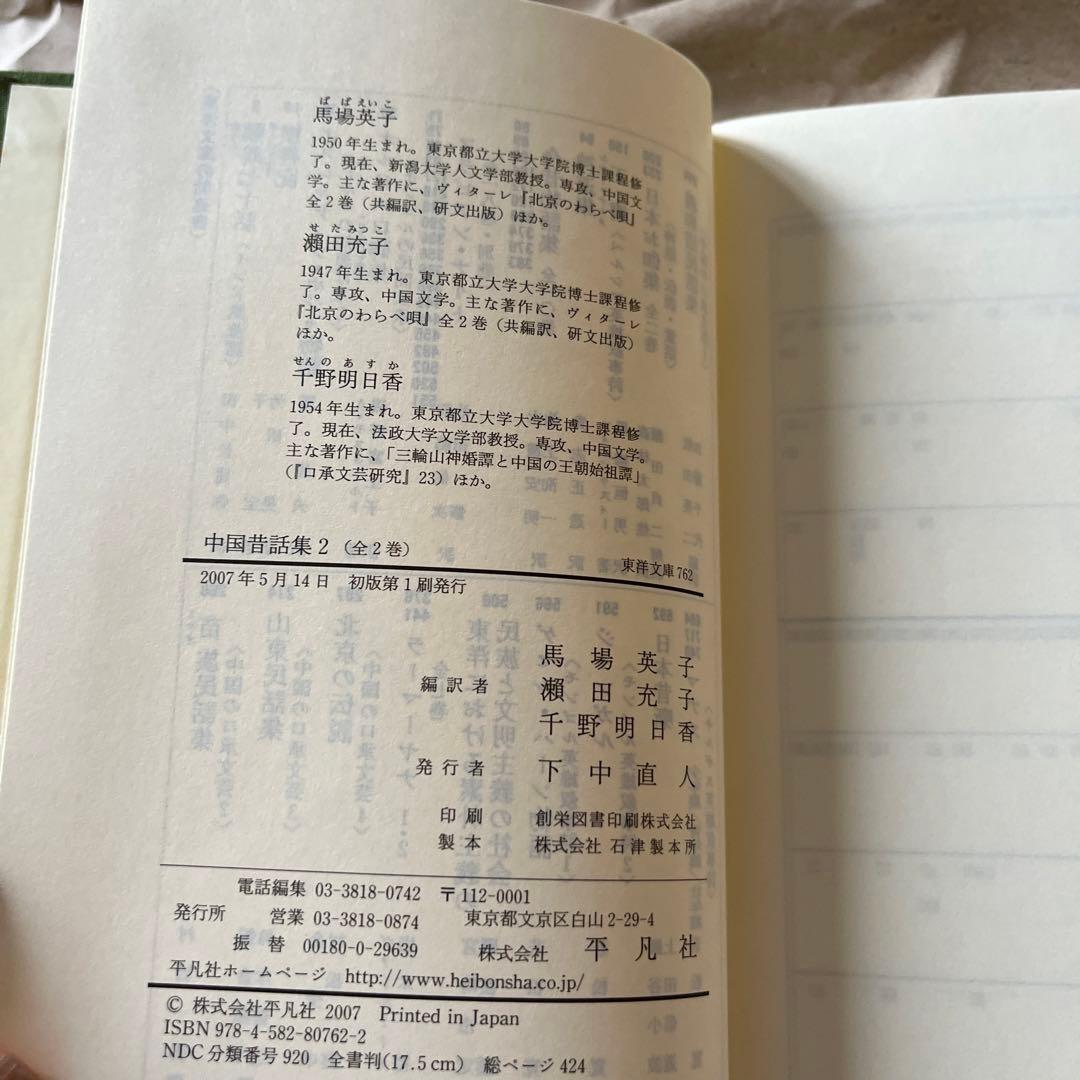 ばばえいこ
馬場英子
1950年生まれ。東京都立大学大学院博士課程修
了。現在、新潟大学人文学部教授。専攻、中国文
学。主な著作に、ヴィターレ『北京のわらべ唄』
全2巻（共編訳、研文出版）ほか。
せたみつこ
瀬田充子
1947年生まれ。東京都立大学大学院博士課程修
了。専攻、中国文学。主な著作に、ヴィターレ
『北京のわらべ唄』全2巻（共編訳、研文出版）
ほか。
せんのあすか
千野明日香
1954年生まれ。東京都立大学大学院博士課程修
了。現在、法政大学文学部教授。専攻、中国文学。
主な著作に、「三輪山神婚譚と中国の王朝始祖譚」
（『口承文芸研究』23）ほか。
中国昔話集2（全2巻） 東洋文庫762
2007年5月14日 初版第1刷発行
馬場英子
編訳者 瀬田充子
千野明日香
発行者 下中直人
印刷 創栄図書印刷株式会社
製本 株式会社石津製本所
電話編集 03-3818-0742 〒112-0001
発行所 営業 03-3818-0874 東京都文京区白山2-29-4
振替 00180-0-29639 株式会社 平凡社
平凡社ホームページ http://www.heibonsha.co.jp/
© 株式会社平凡社 2007 Printed in Japan
ISBN 978-4-582-80762-2
NDC分類番号920 全書判(17.5cm) 総ページ424